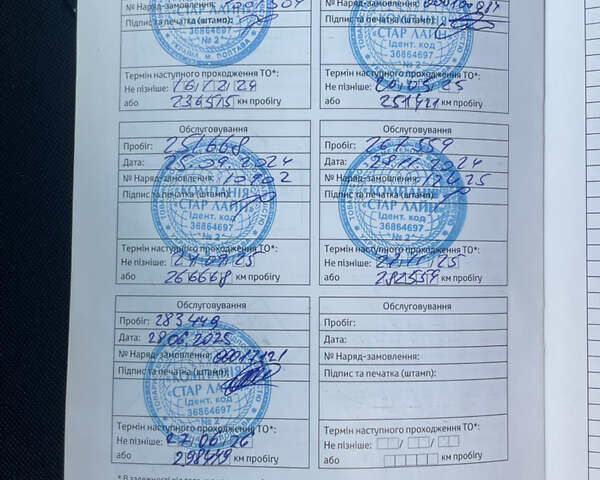 № Наряд-замовлення:
Підпис та печатка (штамп):
36864697
№ 2
УКРАЇНА, М. ПОЛТАВА
Термін наступного проходження ТО*:
Не пізніше: 16/12/24
або 236515 км пробігу
№ Наряд-замовлення:
Підпис та печатка
КОМПАНІЯ
"СТАР ЛАЙН"
Ідент. код
36864697
№ 2
Термін наступного проходження ТО*:
Не пізніше: 20/05/25
або 251421 км пробігу
Обслуговування
Пробіг: 251668
Дата: 25.09.2024
№ Наряд-замовлення: 10902
Підпис та печатка (штамп):
КОМПАНІЯ
"СТАР ЛАЙН"
Ідент. код
36864697
№ 2
Термін наступного проходження ТО*:
Не пізніше: 24/09/25
або 266668 км пробігу
Обслуговування
Пробіг: 267559
Дата: 28.11.2024
№ Наряд-замовлення: 12425
Підпис та печатка (штамп):
КОМПАНІЯ
"СТАР ЛАЙН"
Ідент. код
36864697
№ 2
Термін наступного проходження ТО*:
Не пізніше: 27/11/25
або 282559 км пробігу
Обслуговування
Пробіг: 283449
Дата: 28.06.2025
№ Наряд-замовлення: 00017121
Підпис та печатка (штамп):
КОМПАНІЯ
"СТАР ЛАЙН"
Ідент. код
36864697
№ 2
Термін наступного проходження ТО*:
Не пізніше: 27/06/26
або 298449 км пробігу
Обслуговування
Пробіг:
Дата:
№ Наряд-замовлення:
Підпис та печатка (штамп):
Термін наступного проходження ТО*:
Не пізніше: / /
або км пробігу